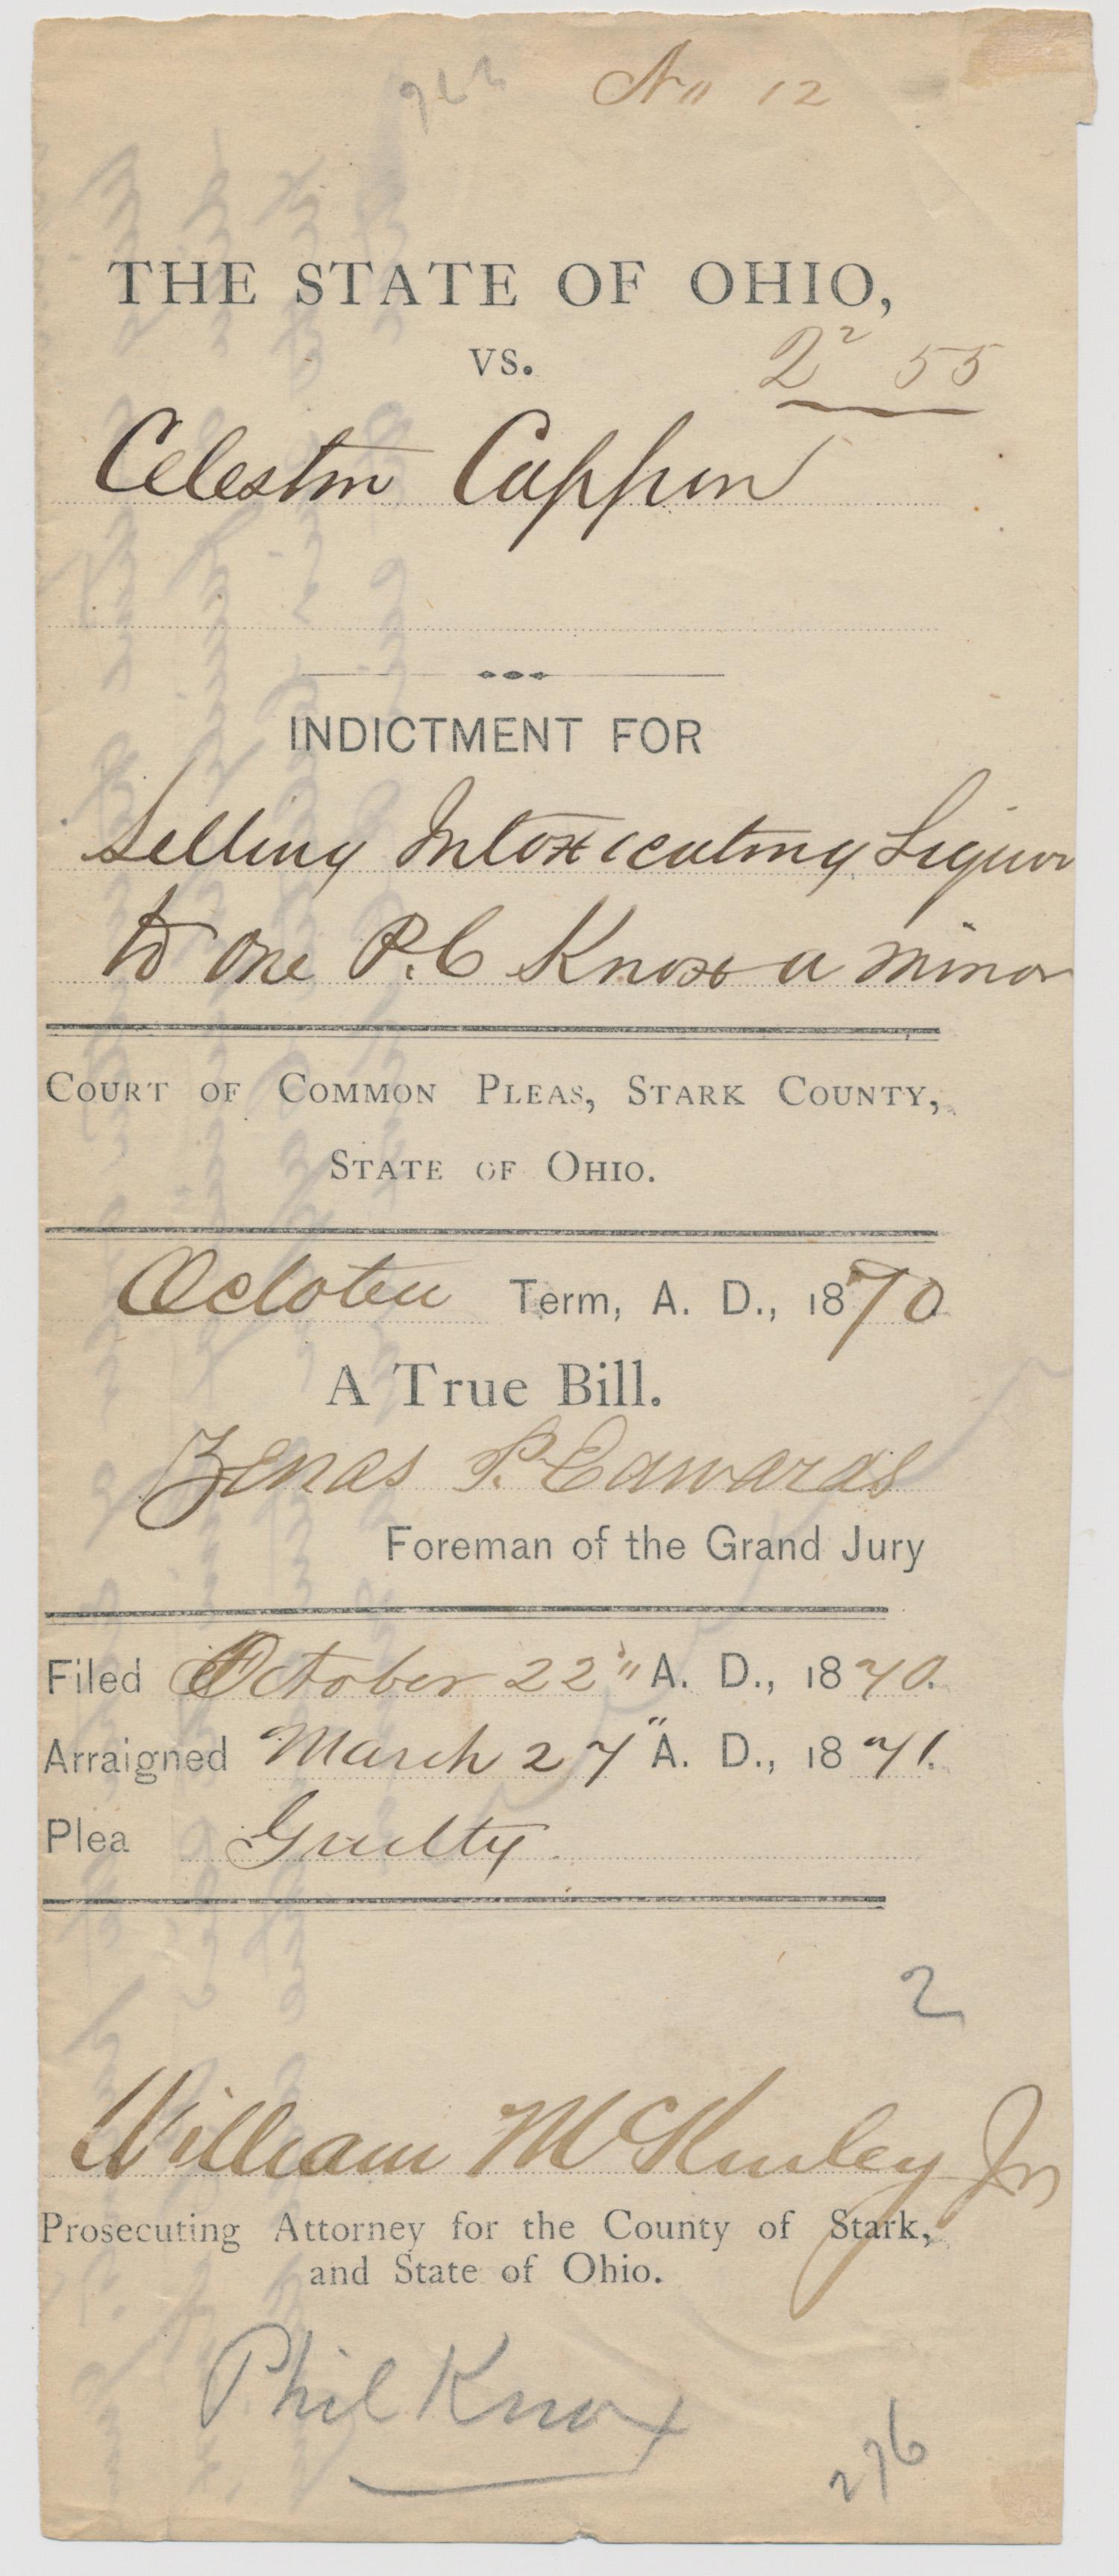 No 12
THE STATE OF OHIO,
vs.
2² 55
Celestin Cappon
INDICTMENT FOR
Selling Intoxicating Liquor
to one P.C Knox a minor
COURT OF COMMON PLEAS, STARK COUNTY,
STATE OF OHIO.
October Term, A. D., 1870
A True Bill.
Zenas P. Edwards
Foreman of the Grand Jury
Filed October 22" A. D., 1870.
Arraigned March 27" A. D., 1871.
Plea Guilty.
2
William McKinley Jr
Prosecuting Attorney for the County of Stark,
and State of Ohio.
Phil Knox
276